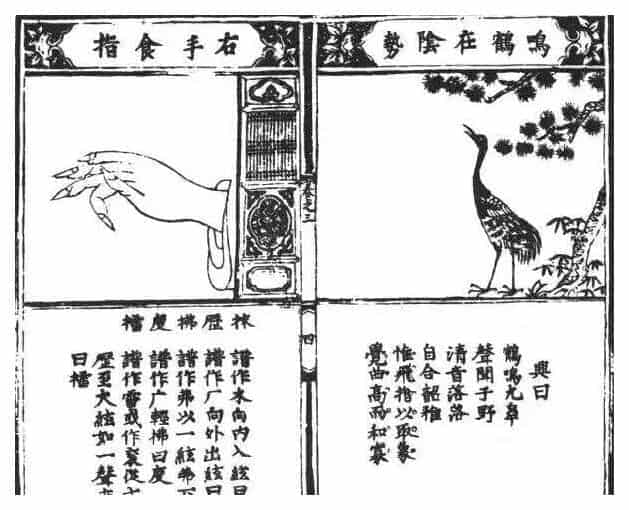 鳴鶴在陰勢
興曰
鶴鳴九皋
聲聞于野
清音落落
自合韶雅
惟飛指以取象
覺曲高而和寡
卷之三
四
右手食指
抹 譜作木向內入絃曰
歷 譜作厂向外出絃曰
拂 譜作弗以一絃弗下
度 譜作广輕拂曰度
擂 譜作雷或作裂從七
歷至大絃如一聲亦
曰擂